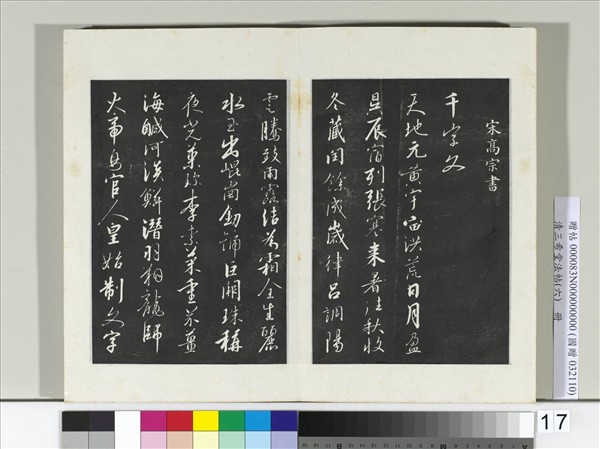 宋高宗書
千字文
天地元黃宇宙洪荒日月盈
昃辰宿列張寒來暑往秋收
冬藏閏餘成歲律呂調陽
雲騰致雨露結為霜金生麗
水玉出崐崗劍號巨闕珠稱
夜光菓珍李柰菜重芥薑
海鹹河淡鱗潛羽翔龍師
火帝鳥官人皇始制文字
贈帖 000083N000000000 (國贈 032110)
清三希堂法帖(六) 冊
17